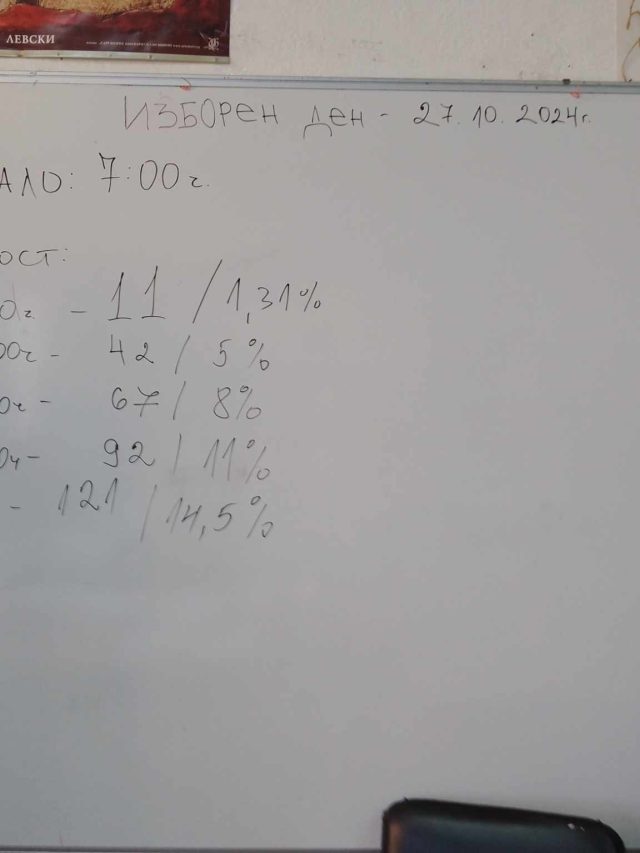 ЛЕВСКИ
ИЗБОРЕН ДЕН - 27.10.2024г.
АЛО: 7:00ч.
ОСТ:
0ч. - 11 / 1,31%
00ч - 42 / 5%
0ч - 67 / 8%
0ч - 92 / 11%
- 121 / 14,5%